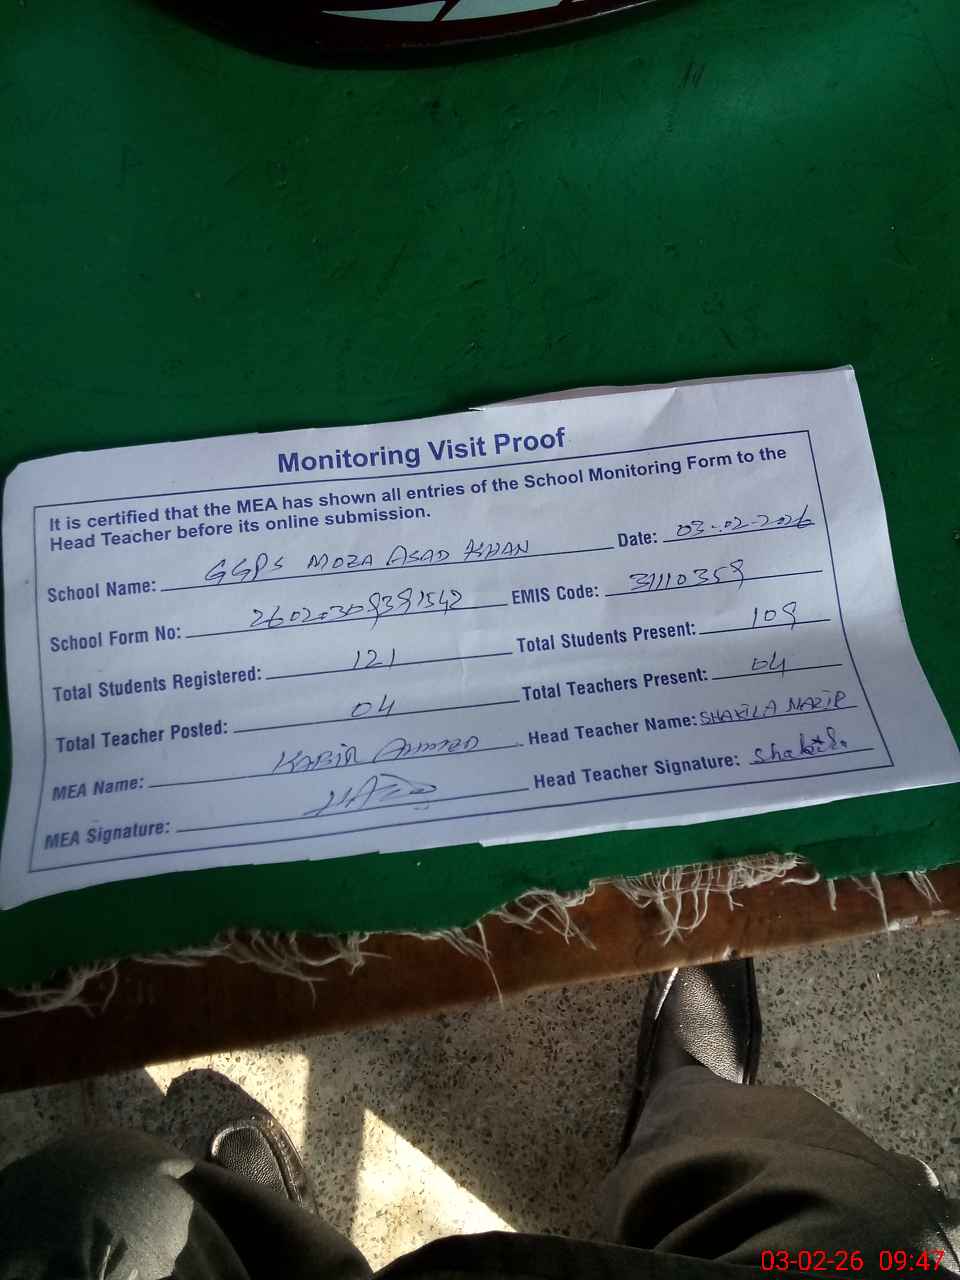 Monitoring Visit Proof
It is certified that the MEA has shown all entries of the School Monitoring Form to the
Head Teacher before its online submission.
School Name: GGPS MOZA ASAD KHAN Date: 03-02-2026
School Form No: EMIS Code: 31110359
Total Students Registered: 121 Total Students Present: 109
Total Teacher Posted: 04 Total Teachers Present: 04
MEA Name: KABIR AHMED Head Teacher Name: SHAKILA NAZIR
MEA Signature: Head Teacher Signature: Shakila
03-02-26 09:47